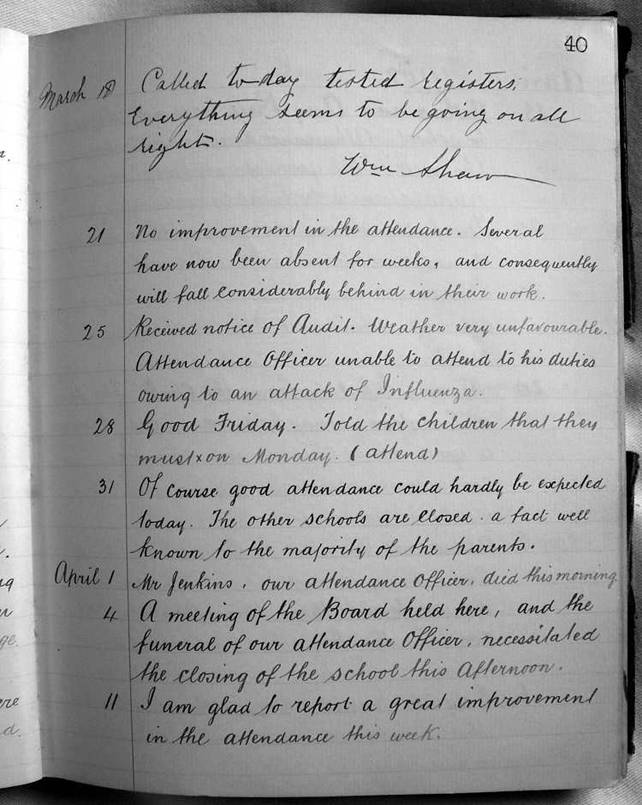 40
March 18 Called to-day tested registers.
Everything seems to be going on all
right.
Wm Shaw
21 No improvement in the attendance. Several
have now been absent for weeks, and consequently
will fall considerably behind in their work.
25 Received notice of Audit. Weather very unfavourable.
Attendance Officer unable to attend to his duties
owing to an attack of Influenza.
28 Good Friday. Told the children that they
must x on Monday. (attend)
31 Of course good attendance could hardly be expected
today. The other schools are closed. a fact well
known to the majority of the parents.
April 1 Mr Jenkins, our attendance Officer, died this morning
4 A meeting of the Board held here, and the
funeral of our attendance Officer, necessitated
the closing of the school this Afternoon.
11 I am glad to report a great improvement
in the attendance this week.